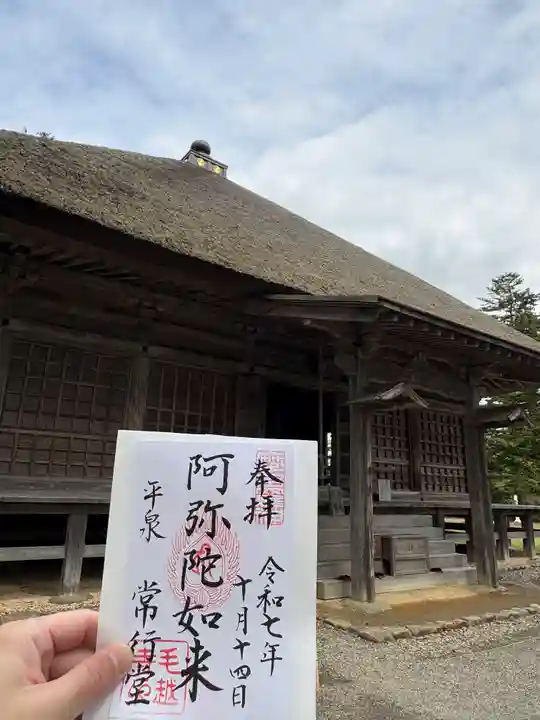 奉拝
令和七年
十月十四日
阿弥陀如来
平泉
常行堂
毛越